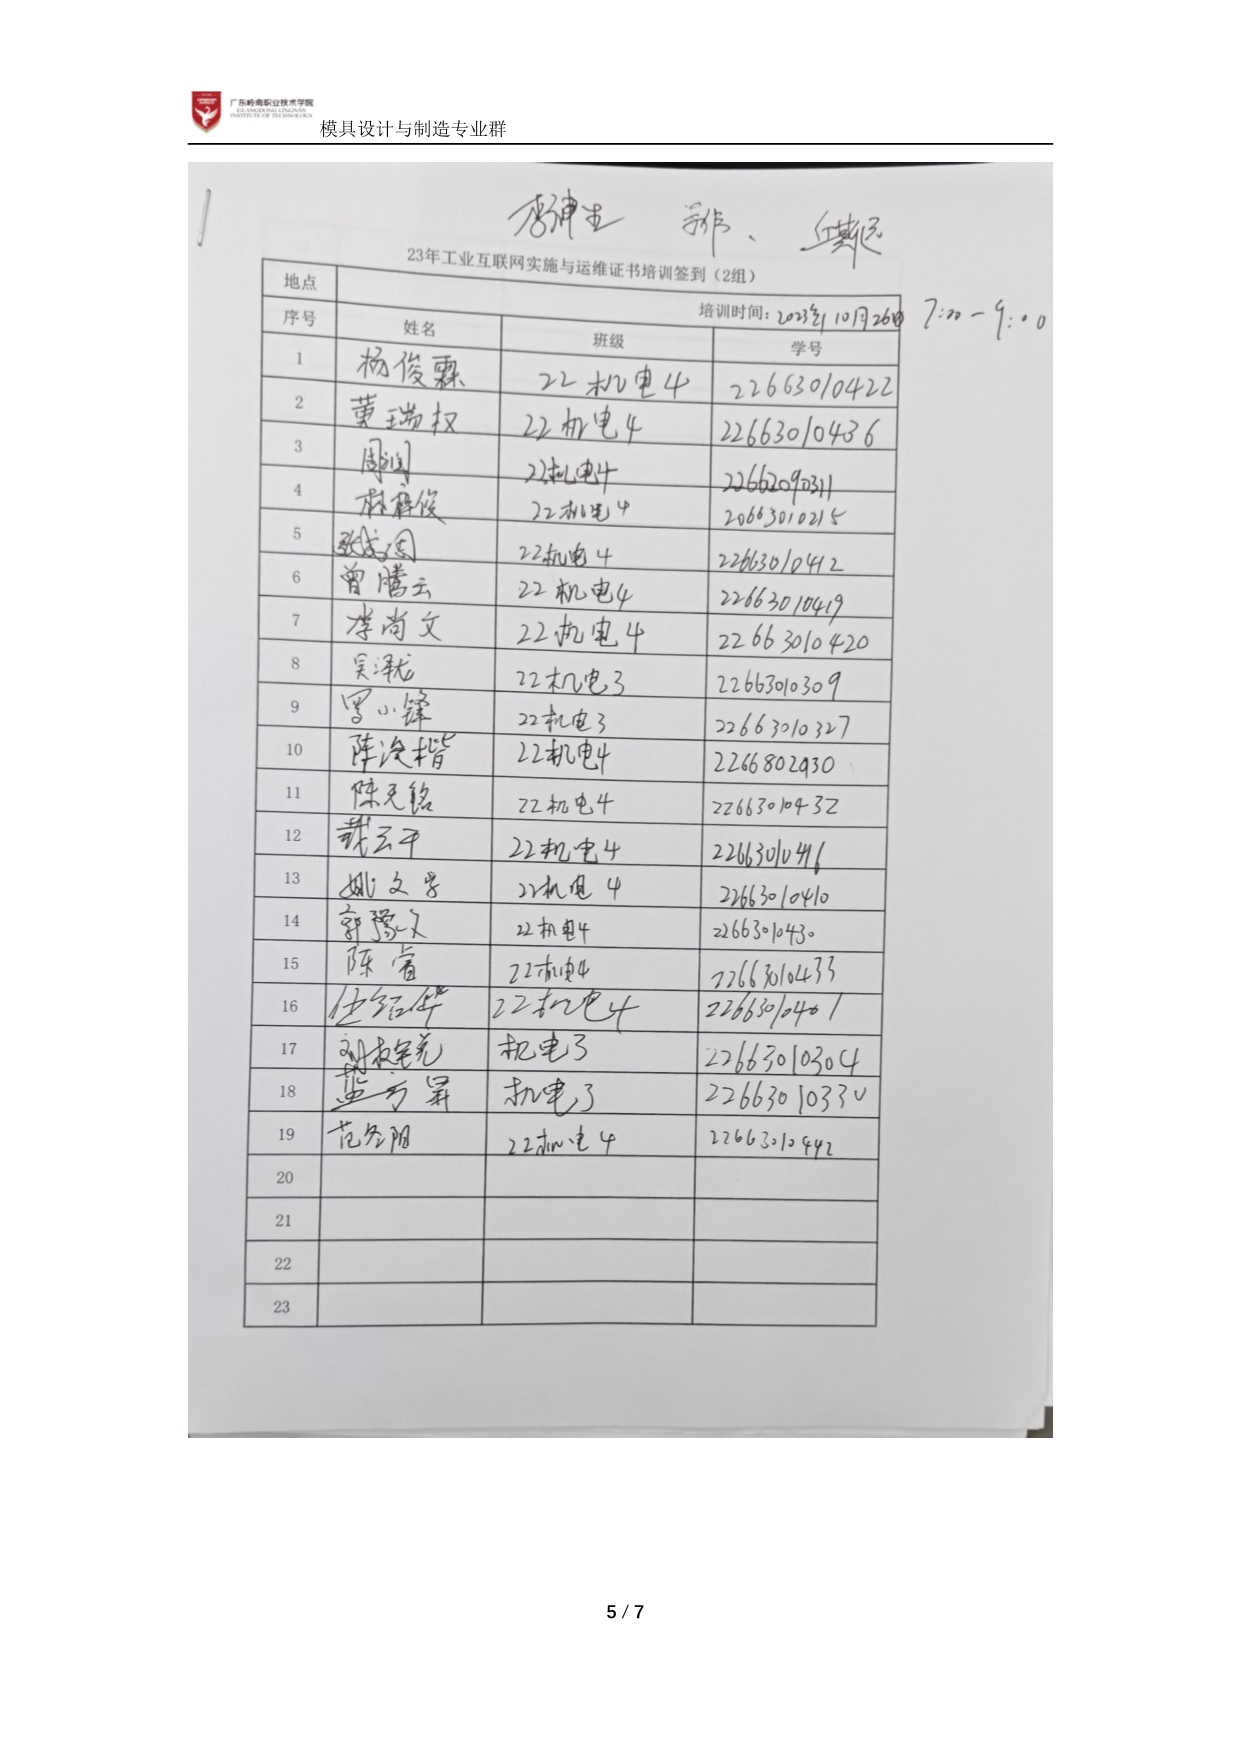 广东岭南职业技术学院
GUANGDONG LINGNAN
INSTITUTE OF TECHNOLOGY
模具设计与制造专业群
23年工业互联网实施与运维证书培训签到（2组）
地点
培训时间：2023年10月26日 7:00-9:00
序号 姓名 班级 学号
1 杨俊霖 22机电4 22663010422
2 黄瑞权 22机电4 22663010436
3 周润 22机电4 22662090311
4 林梓俊 22机电4 20663010215
5 22机电4 22663010412
6 曾腾云 22机电4 22663010419
7 李尚文 22机电4 22663010420
8 吴泽龙 22机电3 22663010309
9 罗小锋 22机电3 22663010327
10 陈 楷 22机电4 2266802930
11 陈 铭 22机电4 22663010432
12 云平 22机电4 22663010416
13 姚文 22机电4 22663010410
14 郭 文 22机电4 22663010430
15 陈睿 22机电4 22663010433
16 华 22机电4 22663010401
17 刘 机电3 22663010304
18 机电3 22663010330
19 范 阳 22机电4 22663010442
20
21
22
23
5 / 7